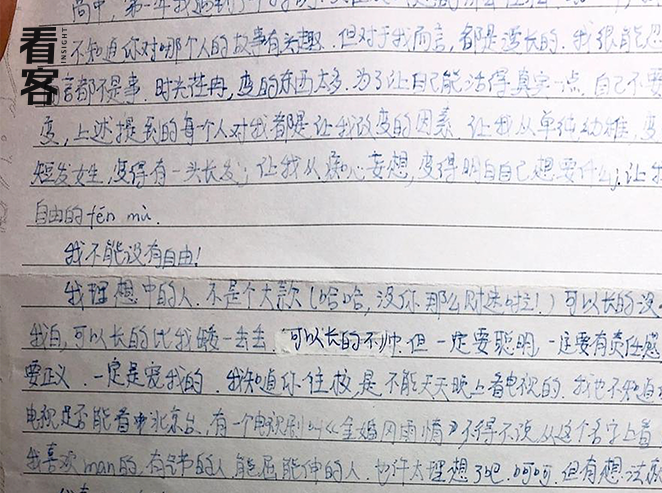 看客
INSIGHT
高中，第一年我遇到了
不知道你对哪个人的故事有兴趣。但对于我而言，都是漫长的。我很能忍
言都不是事。时光荏苒，变的东西太多。为了让自己能活得真实一点，自己不要
度，上述提到的每个人对我都是让我改变的因素。让我从单纯幼稚，变
短发女生，变得有一头长发；让我从痴心妄想，变得明白自己想要什么；让我
自由的fēn mù.
我不能没有自由！
我理想中的人，不是个大款（哈哈，没你那么财迷啦！）可以长的没
我白，可以长的比我矮一丢丢 可以长的不帅．但一定要聪明，一定要有责任感
要正义．一定是宠我的．我知道你住校，是不能天天晚上看电视的．我也不知道
电视是否能看北京台，有一个电视剧叫《金婚风雨情》不得不说，从这个名字上看
我喜欢man的，有才的人，能屈能伸的人．也许太理想了吧．呵呵．但有想法